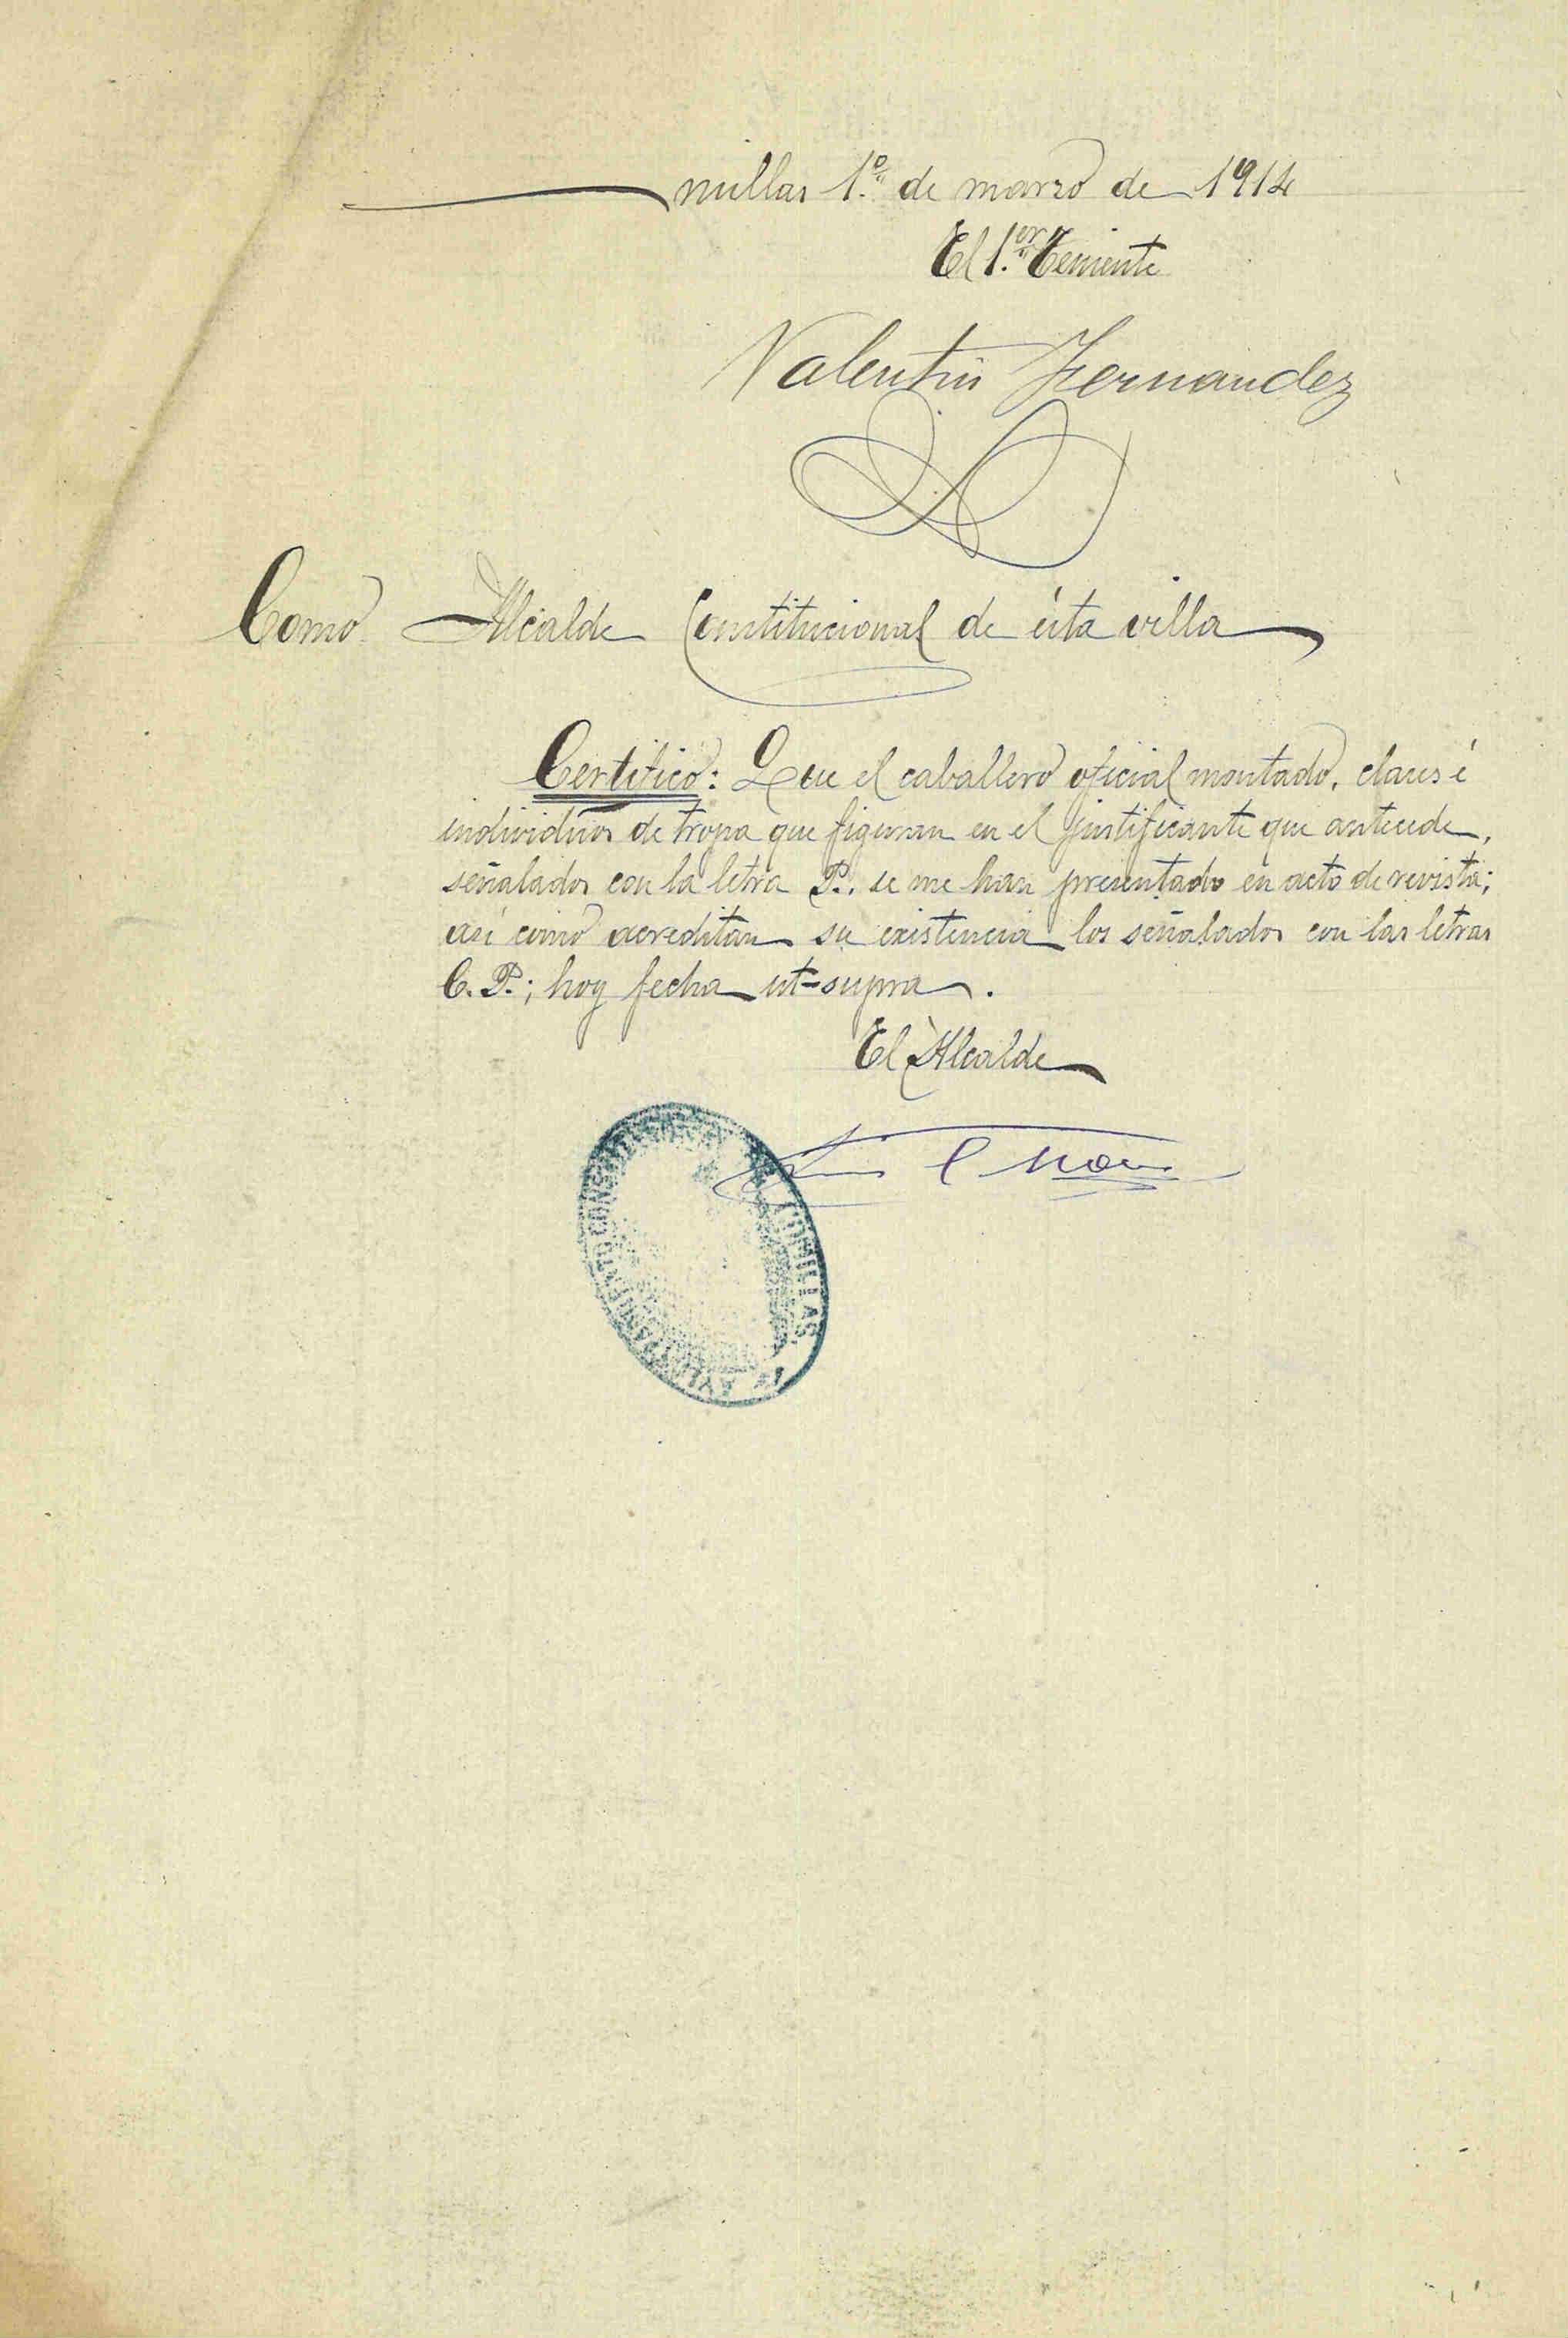 millas 1.º de marzo de 1914
El 1.er Teniente
Valentin Hernandez
Como Alcalde Constitucional de ésta villa
Certifico: Que el caballero oficial montado, clases é
individuos de tropa que figuran en el justificante que antecede,
señalados con la letra P. se me han presentado en acto de revista;
asi como acreditan su existencia los señalados con las letras
C. P.; hoy fecha ut-supra.
El Alcalde